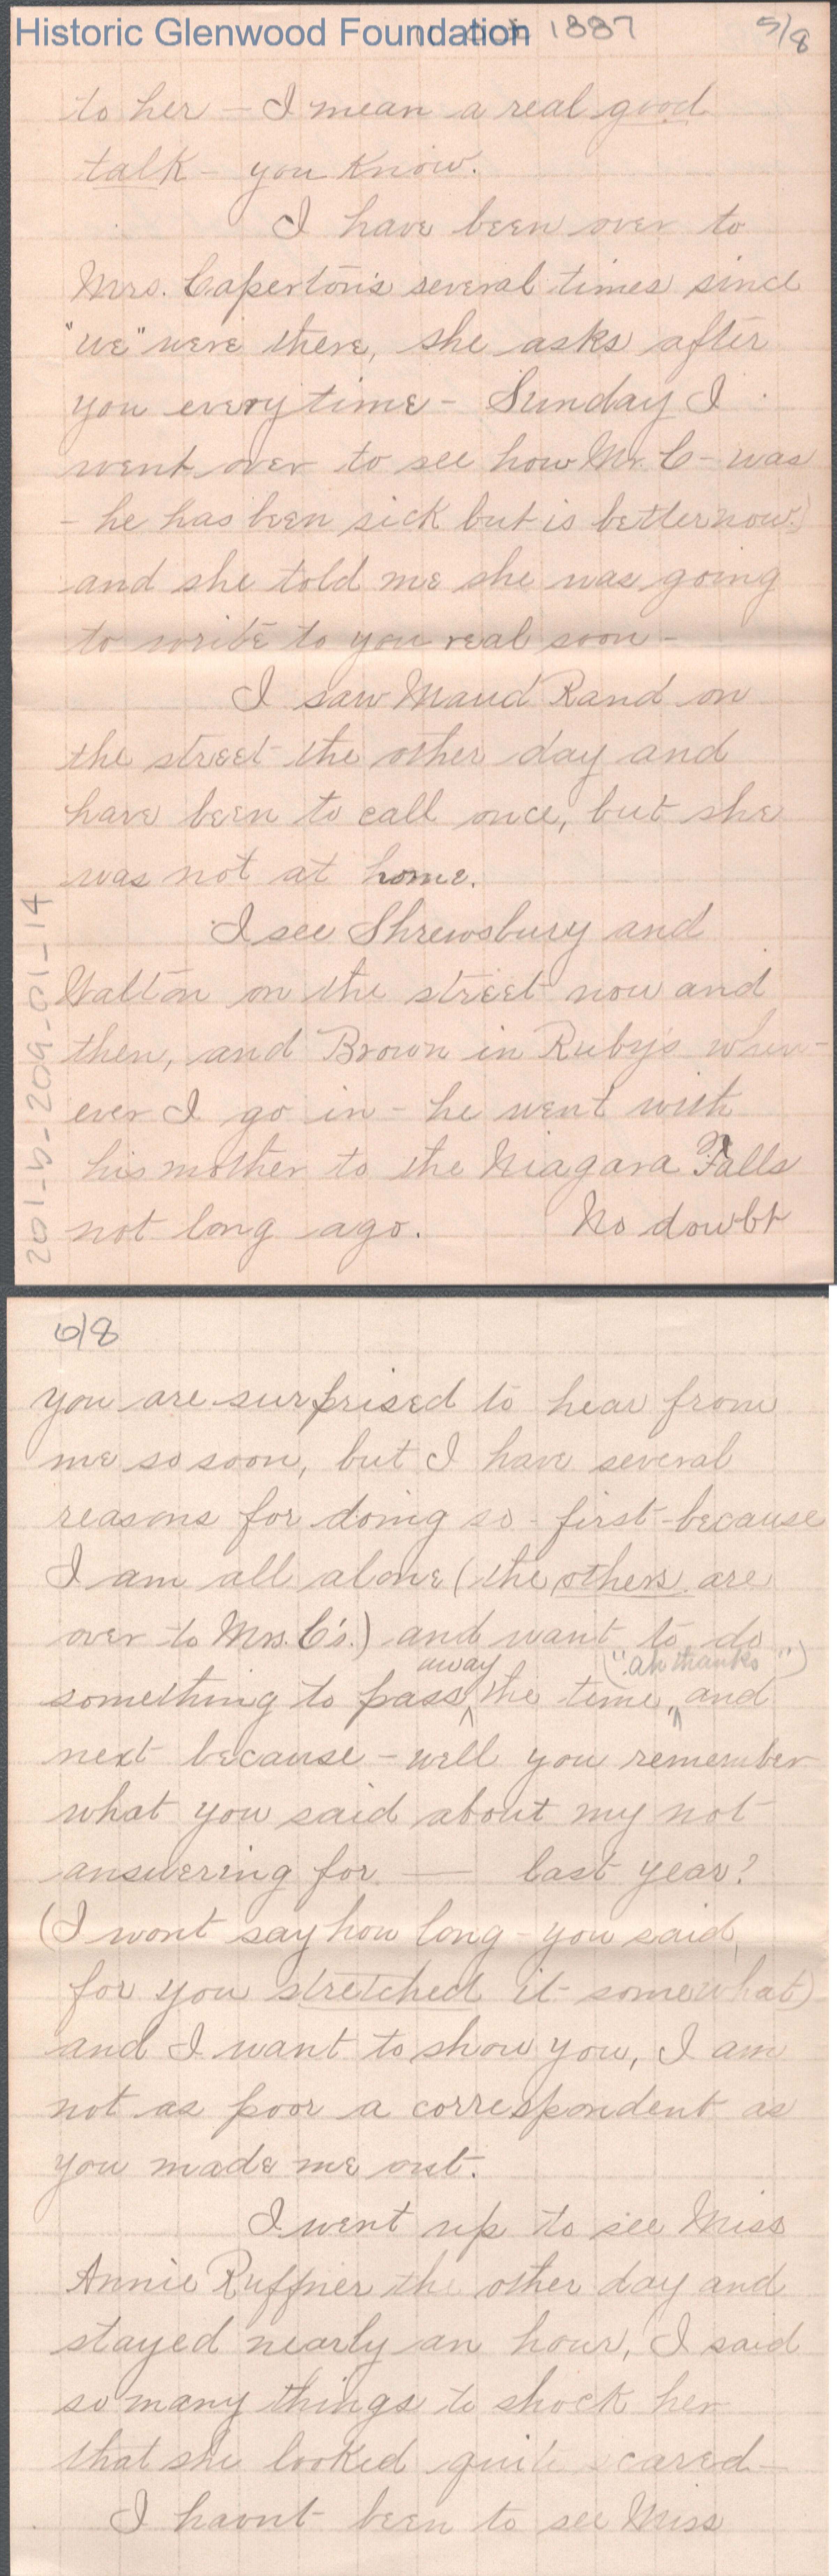 Historic Glenwood Foundation 1887 5/8
to her – I mean a real good
talk – you know.
I have been over to
Mrs. Caperton's several times since
"we" were there, she asks after
you everytime – Sunday I
went over to see how Mr. C – was
– he has been sick but is better now.)
and she told me she was going
to write to you real soon –
I saw Maud Rand on
the street the other day and
have been to call once, but she
was not at home.
I see Shrewsbury and
Walton on the street now and
then, and Brown in Ruby's when-
ever I go in – he went with
his mother to the Niagara Falls
not long ago. No doubt
201-b-209-01-14
6/8
you are surprised to hear from
me so soon, but I have several
reasons for doing so – first – because
I am all alone (the others are
over to Mrs. C's.) and want to do
away ("ah thanks")
something to pass the time, and
next because – well you remember
what you said about my not
answering for — last year?
(I wont say how long – you said,
for you stretched it somewhat)
and I want to show you, I am
not as poor a correspondent as
you made me out.
I went up to see Miss
Annie Ruffner the other day and
stayed nearly an hour, I said
so many things to shock her
that she looked quite scared –
I havnt been to see Miss